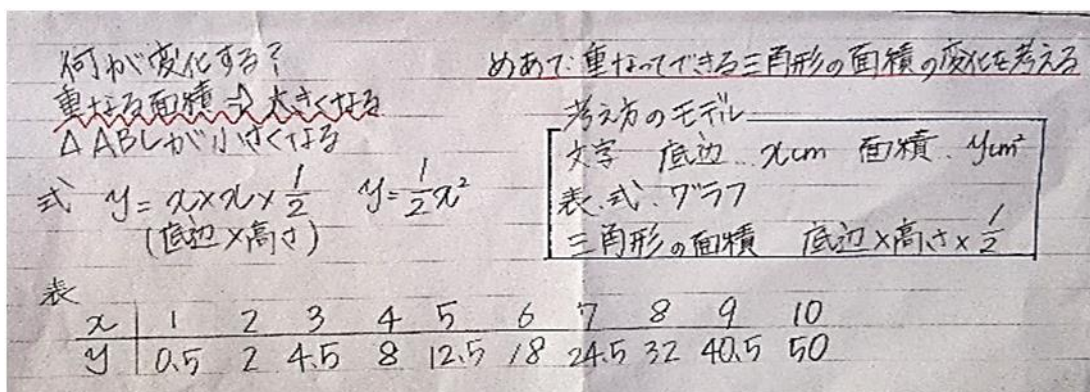 何が変化する?
重なる面積⇒大きくなる
△ABCが小さくなる
式 y=x×x×1/2 y=1/2x²
(底辺×高さ)
めあて:重なってできる三角形の面積の変化を考える
考え方のモデル
文字 底辺…xcm 面積…ycm²
表、式、グラフ
三角形の面積 底辺×高さ×1/2
表
x 1 2 3 4 5 6 7 8 9 10
y 0.5 2 4.5 8 12.5 18 24.5 32 40.5 50